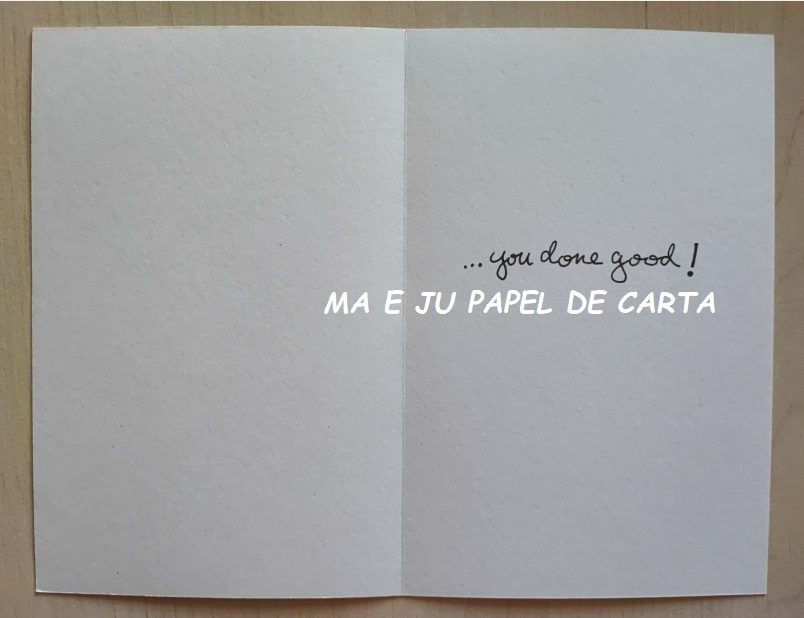 ...you done good!
MA E JU PAPEL DE CARTA